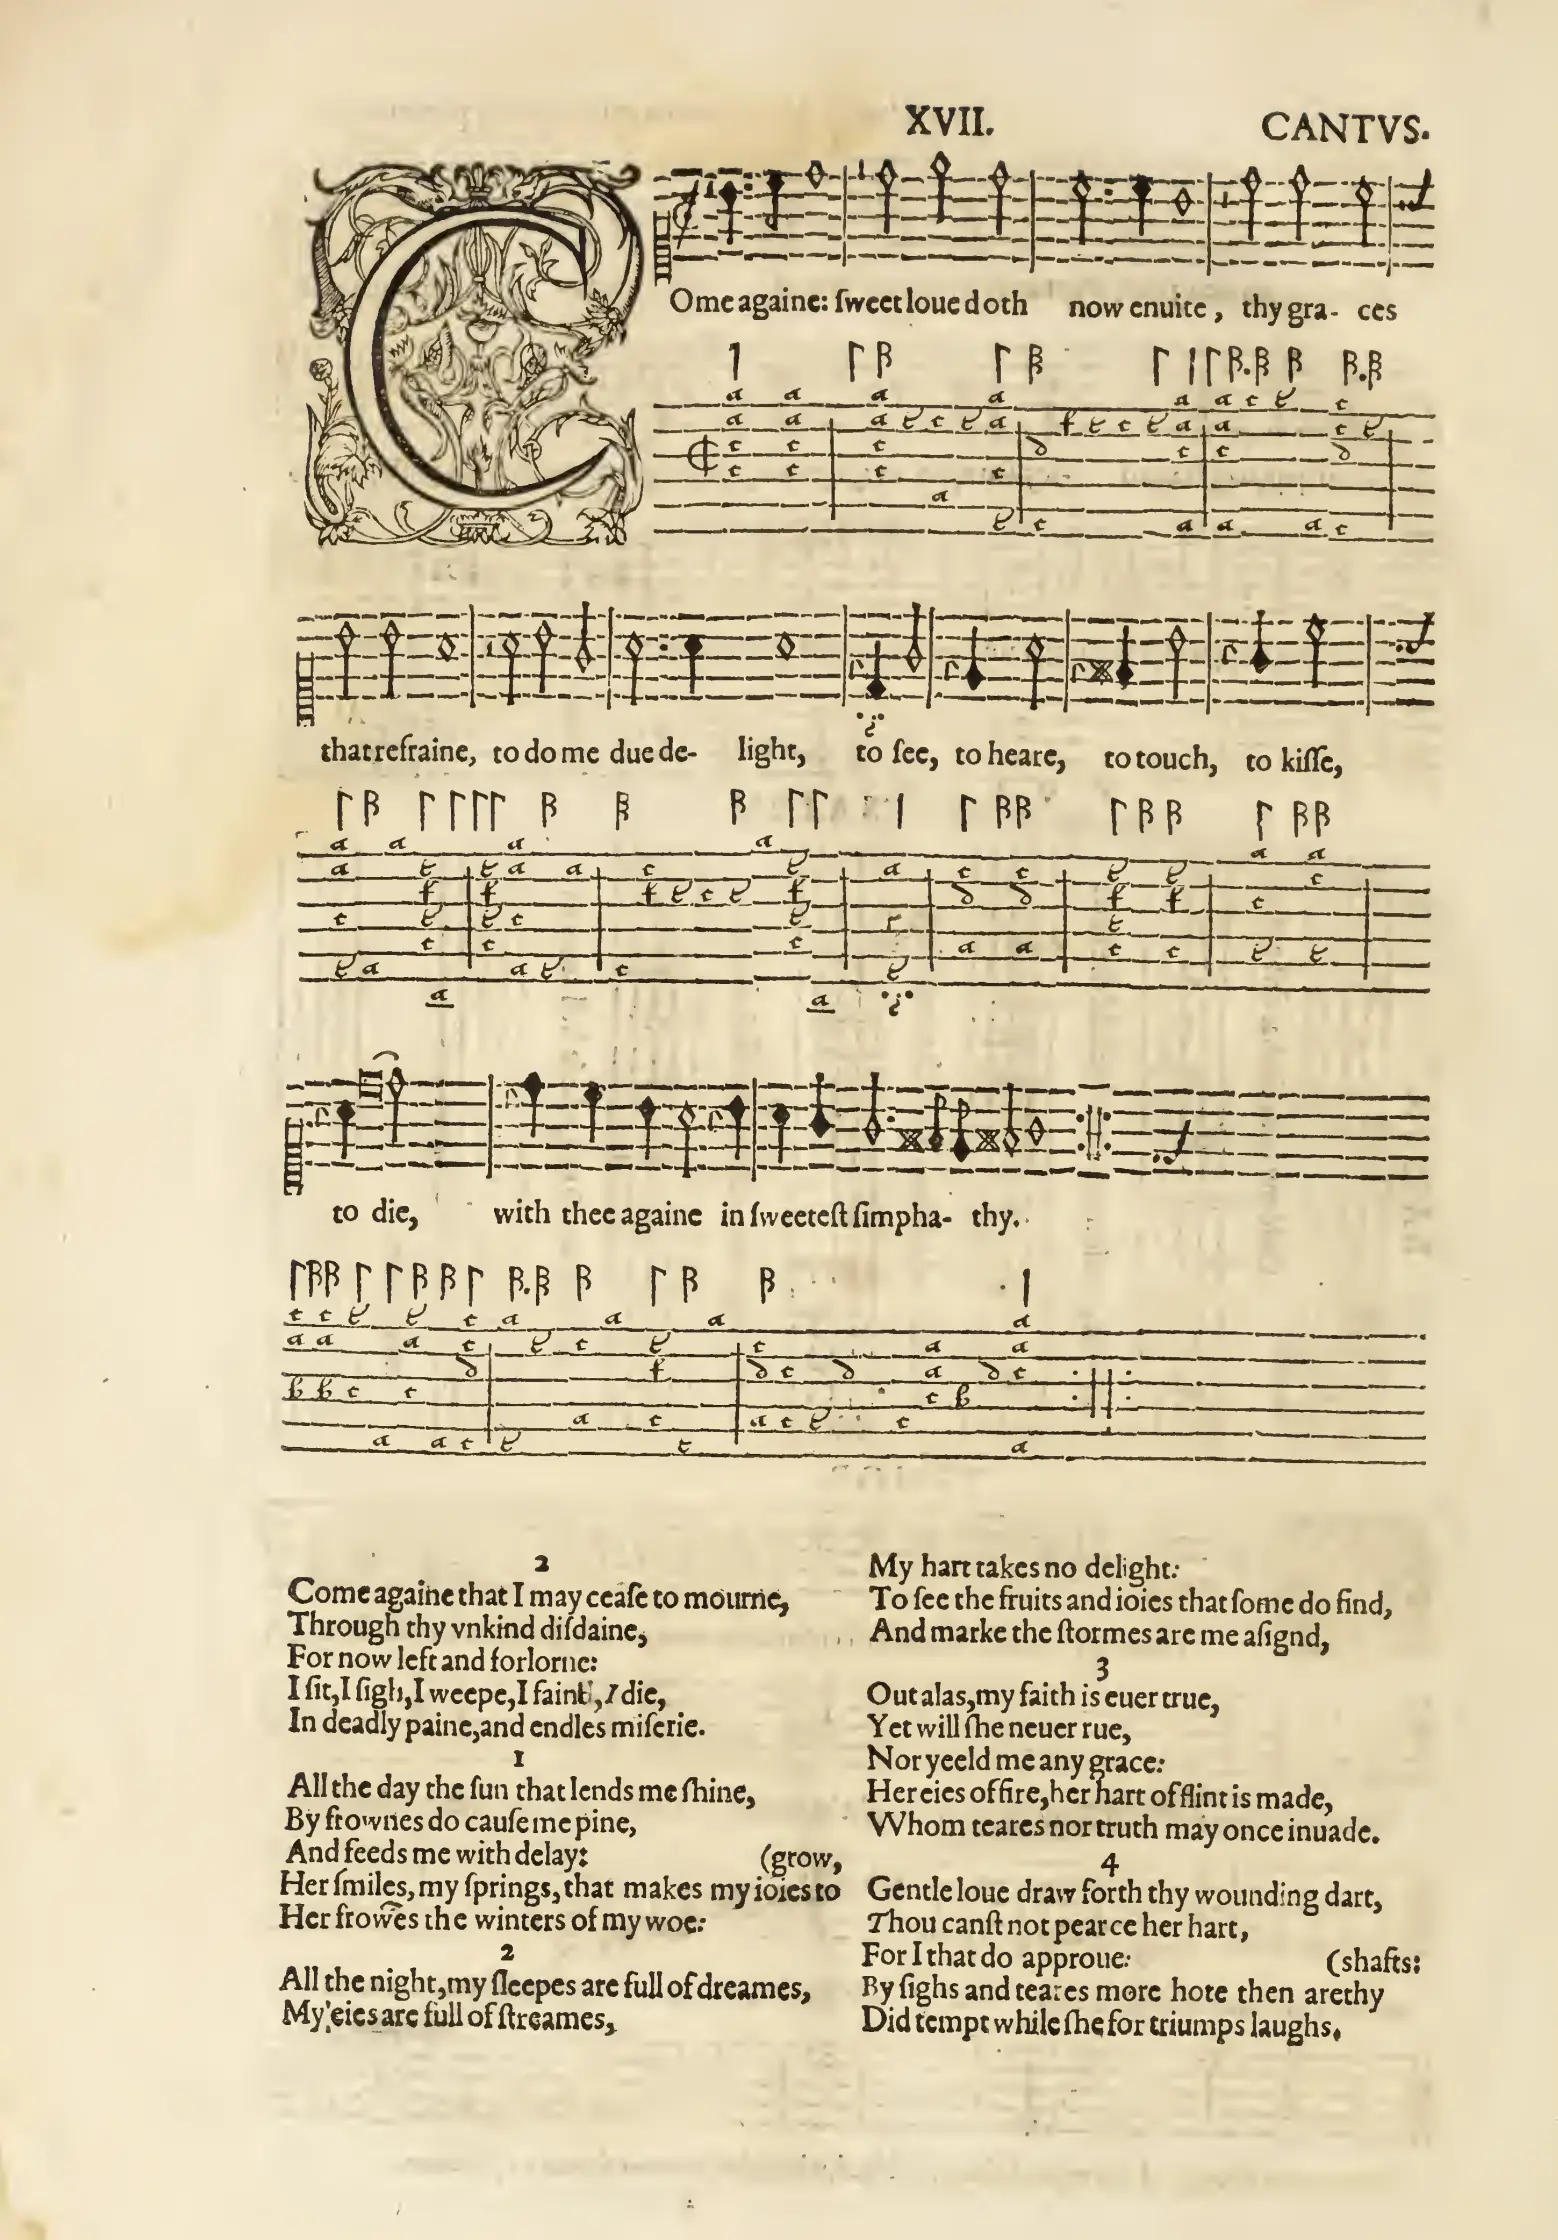 XVII. CANTVS.
COme againe: ſweet loue doth now enuite, thy gra- ces
that refraine, to do me due de- light, to ſee, to heare, to touch, to kiſſe,
to die, with thee againe in ſweeteſt ſimpha- thy.
2
Come againe that I may ceaſe to mourne,
Through thy vnkind diſdaine,
For now left and forlorne:
I ſit, I ſigh, I weepe, I faint, I die,
In deadly paine, and endles miſerie.
1
All the day the ſun that lends me ſhine,
By frownes do cauſe me pine,
And feeds me with delay: (grow,
Her ſmiles, my ſprings, that makes my ioies to
Her frowes the winters of my woe:
2
All the night, my ſleepes are full of dreames,
My eies are full of ſtreames,
My hart takes no delight:
To ſee the fruits and ioies that ſome do find,
And marke the ſtormes are me aſignd,
3
Out alas, my faith is euer true,
Yet will ſhe neuer rue,
Nor yeeld me any grace:
Her eies of fire, her hart of flint is made,
Whom teares nor truth may once inuade.
4
Gentle loue draw forth thy wounding dart,
Thou canſt not pearce her hart,
For I that do approue: (shafts:
By ſighs and teares more hote then are thy
Did tempt while ſhe for triumps laughs.